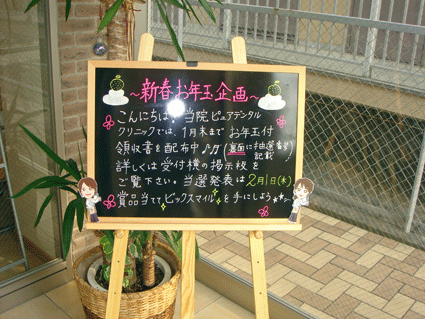 ～新春お年玉企画～
こんにちは！当院ピュアデンタル
クリニックでは、1月末まで お年玉付
領収書を配布中♪♫(裏面に抽選番号記載)
詳しくは受付横の掲示板を
ご覧下さい。当選発表は2月1日(水)
賞品当ててビックスマイルを手にしよう★★